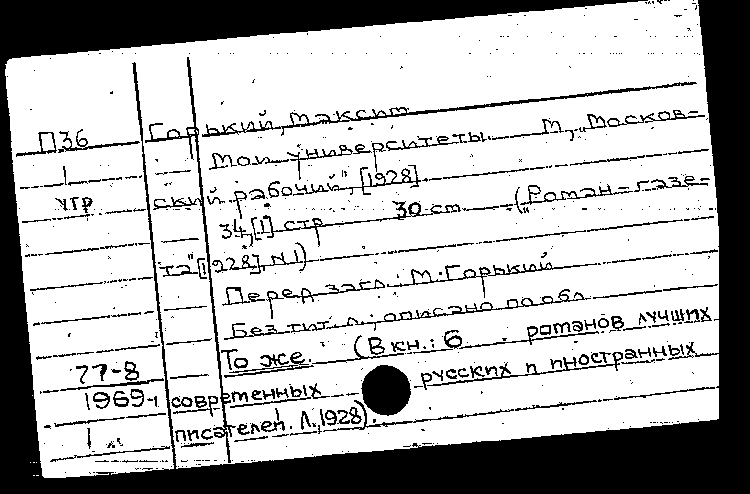 П36 Горький, Максим
Мои университеты. М, „Москов-
1
ский рабочий", [1928].
угр
34,[1] стр 30 cm. („Роман-газе-
та" [1928], N1)
Перед загл.: М. Горький
Без тит. л.; описано по обл
То же. (В кн.: 6 романов лучших
77-8
1969-1 современных русских и иностранных
1 писателей. Л., 1928).